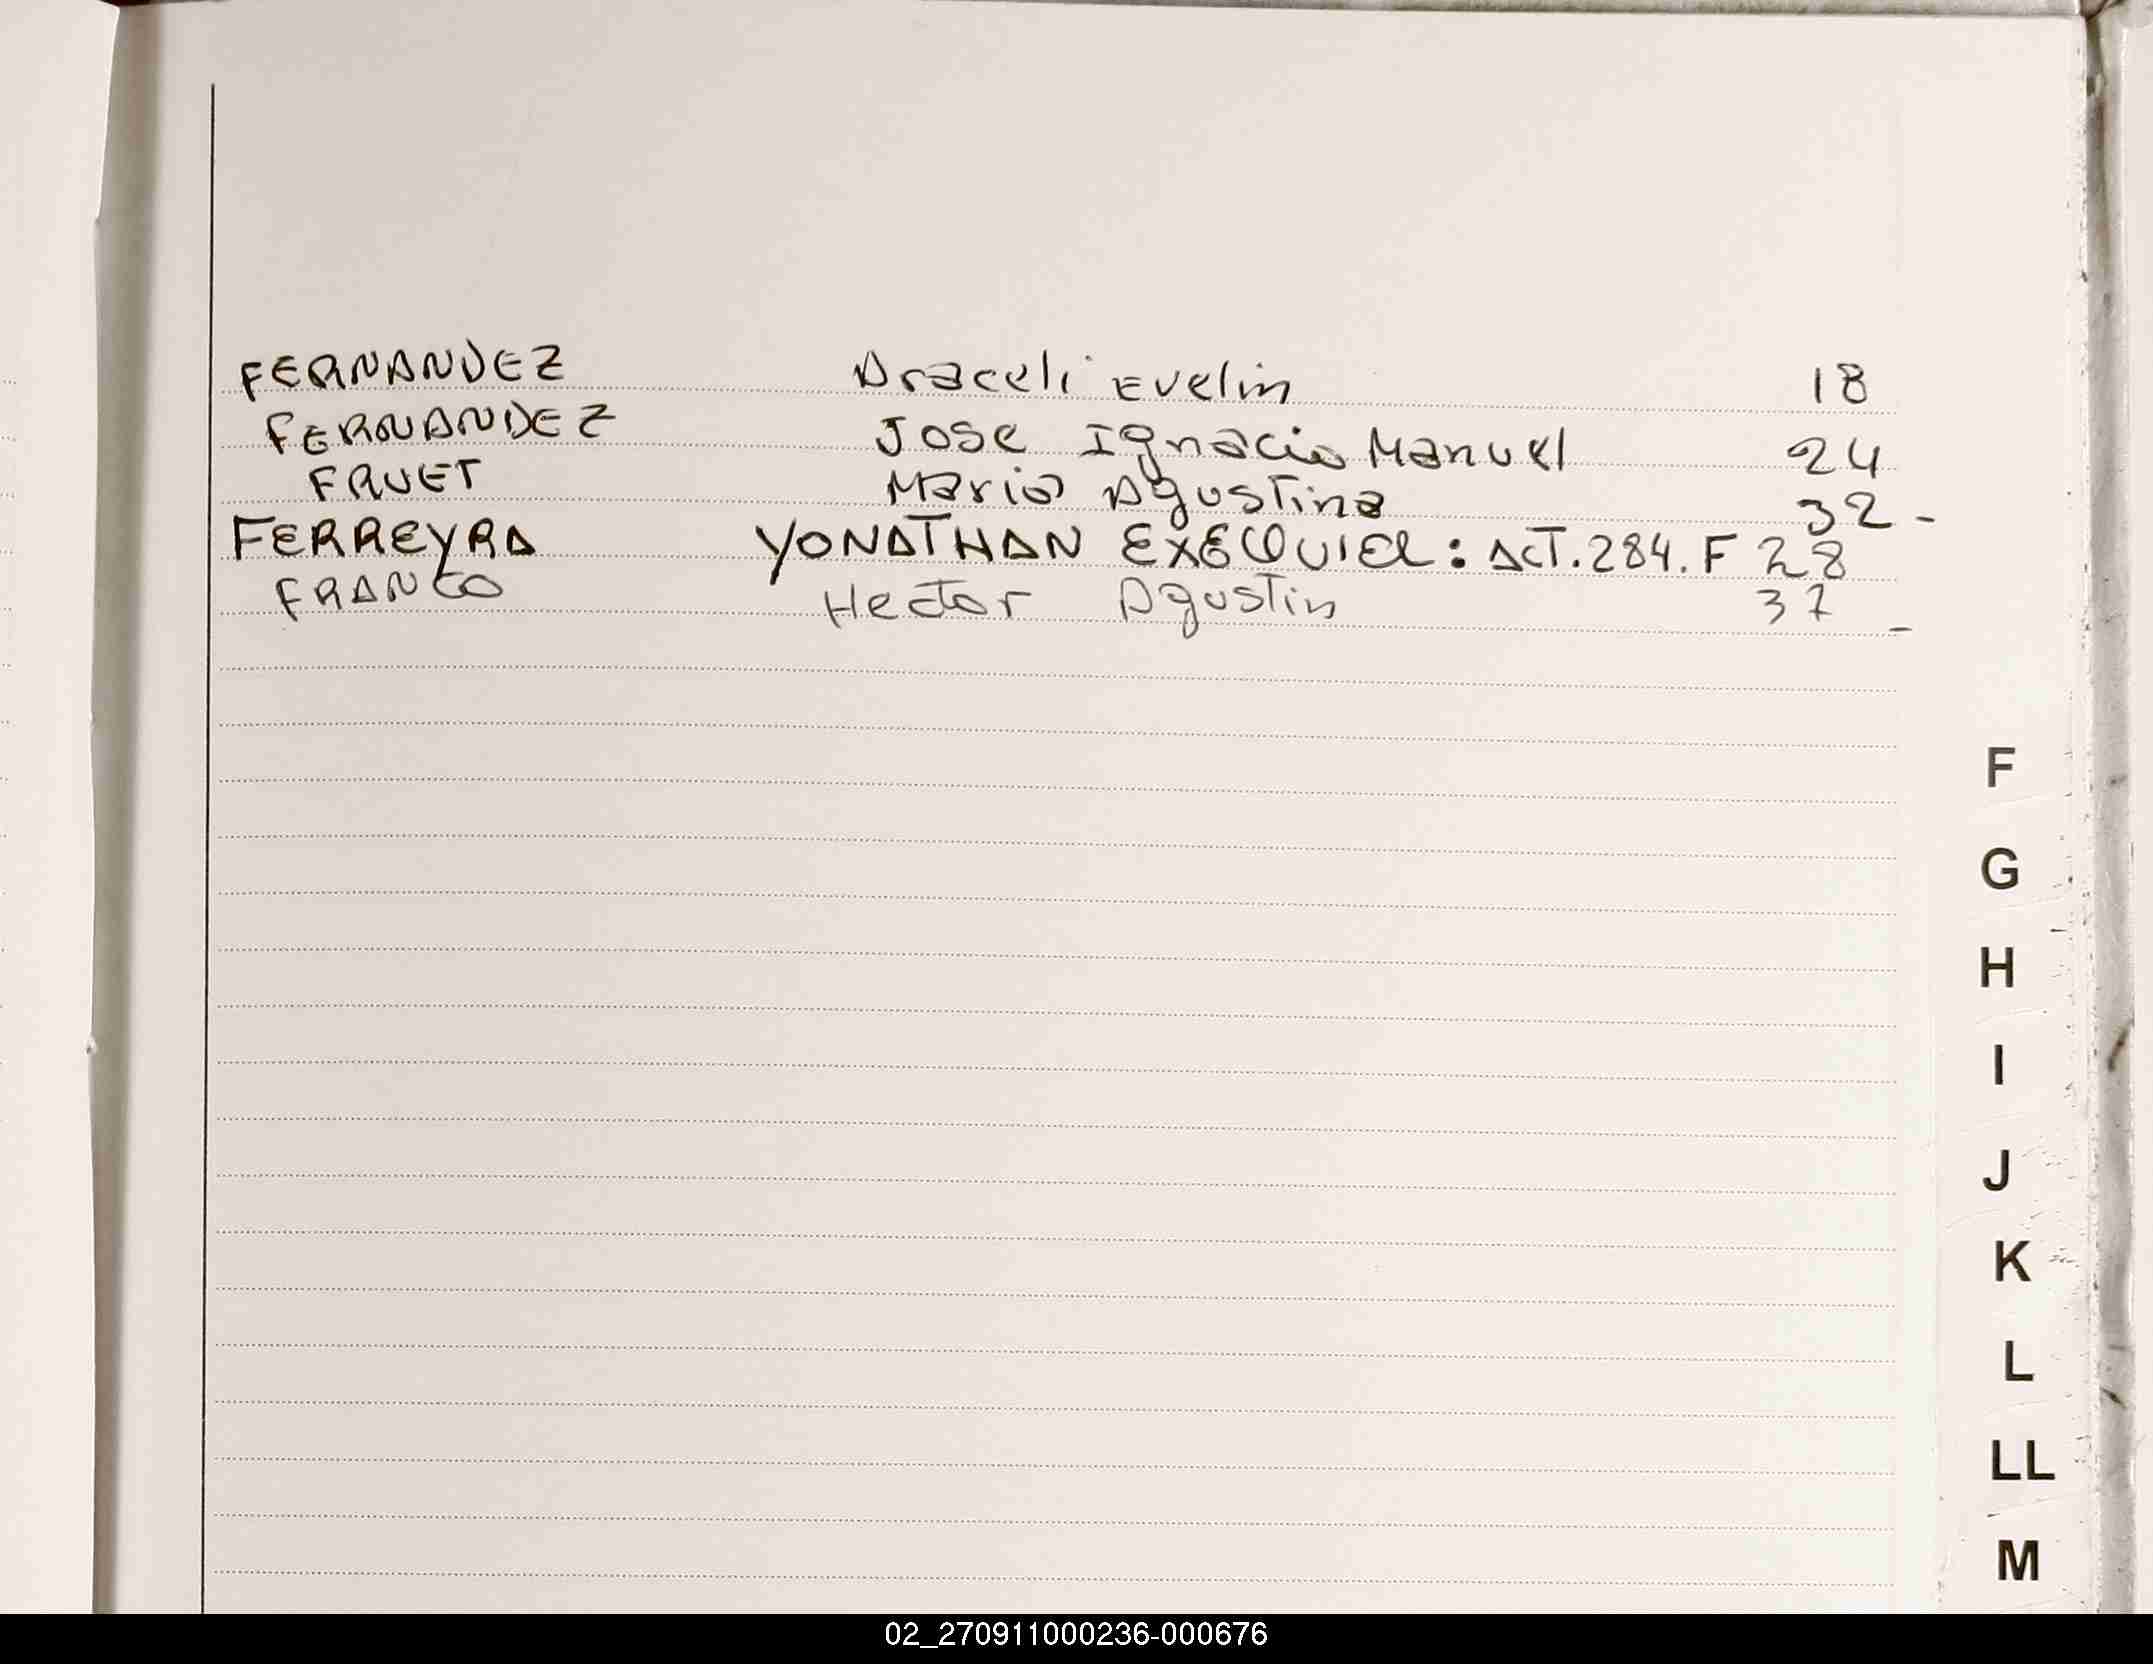 FERNANDEZ Araceli Evelin 18
FERNANDEZ Jose Ignacio Manuel 24
FRUET Mario Agustina 32 -
FERREYRA YONATHAN EXEQUIEL: ACT. 284. F 28
FRANCO Hector Agustin 37 -
F
G
H
I
J
K
L
LL
M
02_270911000236-000676